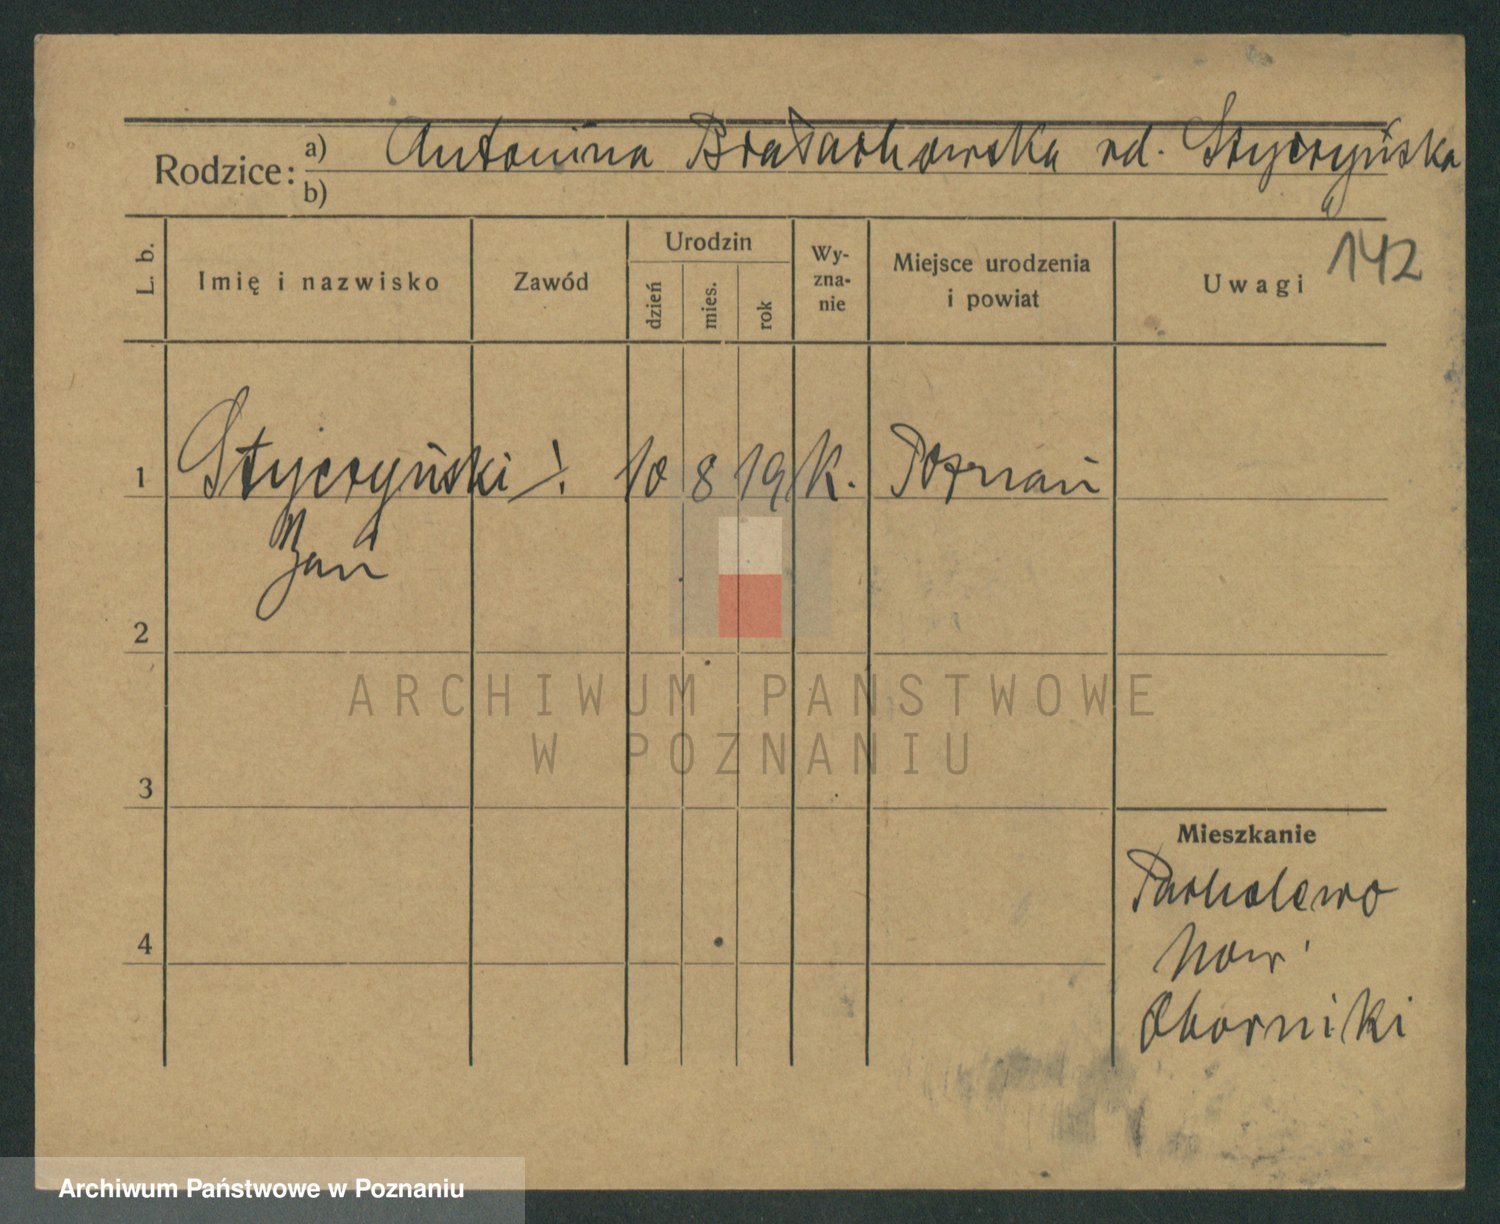 Rodzice: a) Antonina Bratarhowska rd. Styczyńska
b)
142
L. b. Imię i nazwisko Zawód Urodzin dzień mies. rok Wy-zna-nie Miejsce urodzenia i powiat Uwagi
1 Styczyński /. 10 8 19 K. Poznań
Jan
2
ARCHIWUM PAŃSTWOWE
W POZNANIU
3
Mieszkanie
Parholewo
4
Oborniki
Archiwum Państwowe w Poznaniu